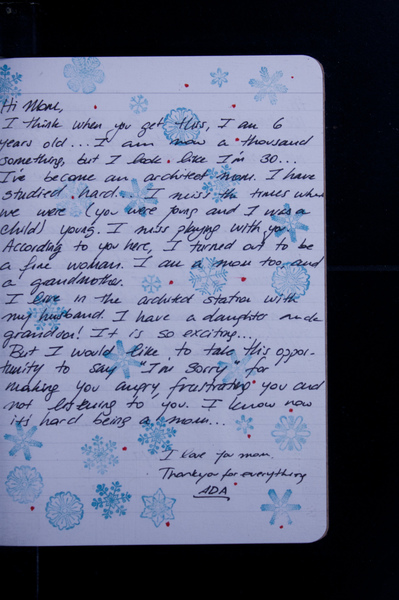 Hi Mom,
I think when you get this, I am 6
years old... I am now a thousand
something, but I look like I'm 30...
I've become an architect mom. I have
studied hard. I miss the times when
we were (you were young and I was a
child) young. I miss playing with you.
According to you here, I turned out to be
a fine woman. I am a mom too, and
a grandmother.
I live in the architect station with
my husband. I have a daughter and
grandson! It is so exciting...
But I would like to take this oppor-
tunity to say "I'm sorry" for
making you angry frustrating you and
not listening to you. I know now
it's hard being a mom...
I love you mom.
Thankyou for everything
ADA